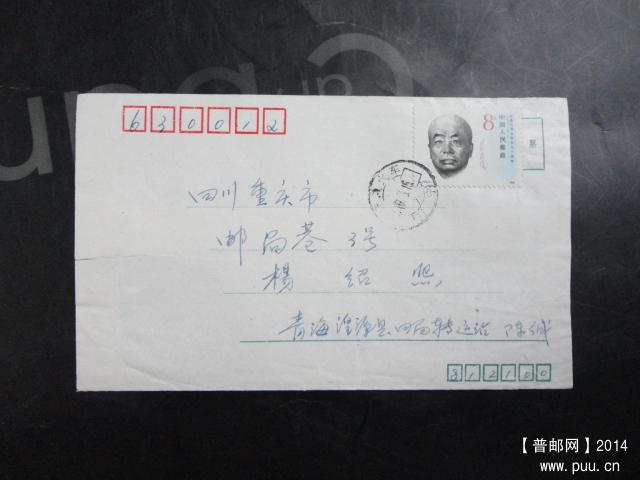 630012
8分
中国人民邮政
四川重庆市
邮局巷 3号
楊 绍 熙
青海湟源县四局转运站 陈
812100
【普邮网】2014
www.puu.cn